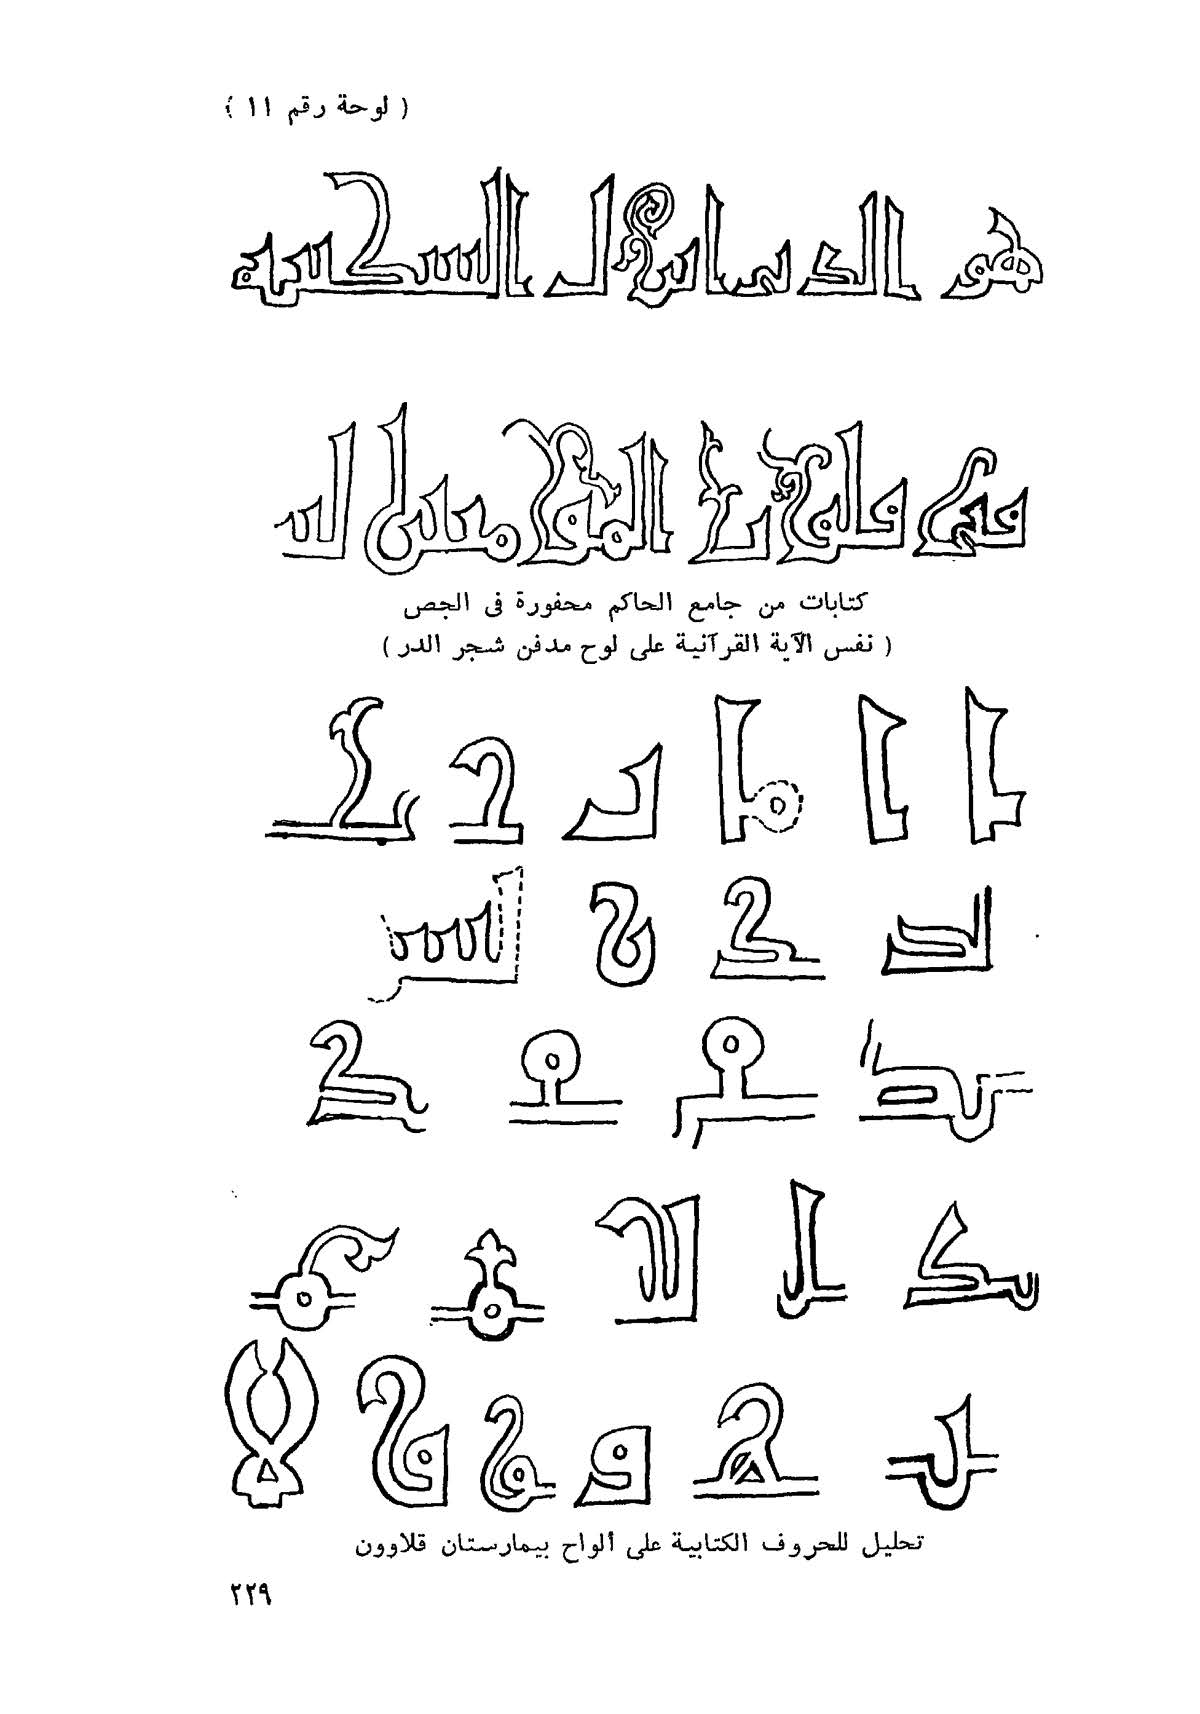 ( لوحة رقم ١١ )
هو الذى انزل السكينة
فى قلوب المؤمنين ليـ
كتابات من جامع الحاكم محفورة فى الجص
( نفس الآية القرآنية على لوح مدفن شجر الدر )
تحليل للحروف الكتابية على ألواح بيمارستان قلاوون
٢٢٩